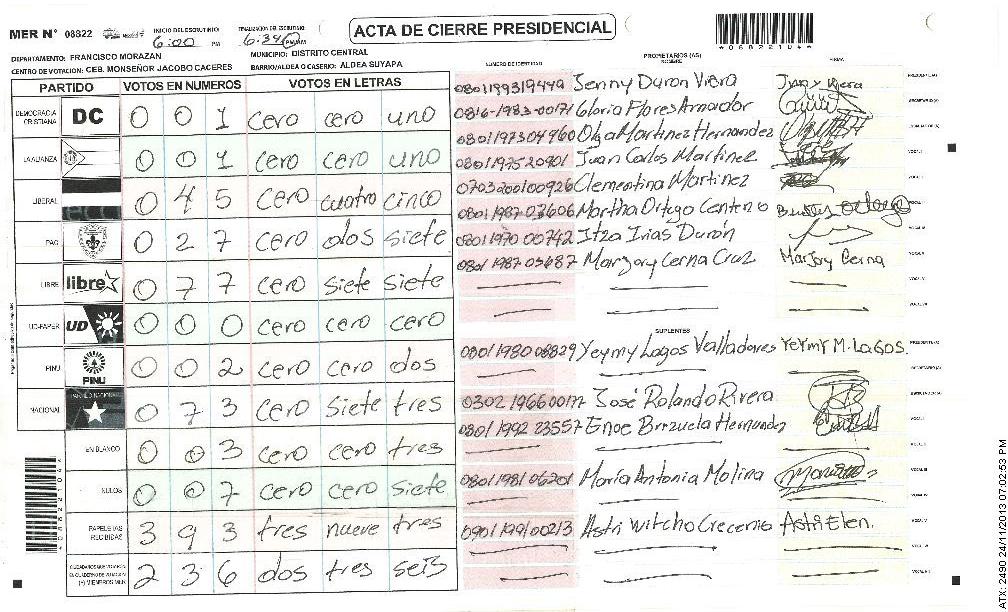 MER N° 08822
INICIO DEL ESCRUTINIO: 6:00 PM
FINALIZACIÓN DEL ESCRUTINIO: 6:34 PM/AM
ACTA DE CIERRE PRESIDENCIAL
*08822104*
DEPARTAMENTO: FRANCISCO MORAZAN
MUNICIPIO: DISTRITO CENTRAL
CENTRO DE VOTACION: CEB. MONSEÑOR JACOBO CACERES
BARRIO/ALDEA O CASERIO: ALDEA SUYAPA
PARTIDO VOTOS EN NUMEROS VOTOS EN LETRAS
DEMOCRACIA CRISTIANA DC 0 0 1 cero cero uno
LA ALIANZA 0 0 1 cero cero uno
LIBERAL 0 4 5 cero cuatro cinco
PAC 0 2 7 cero dos siete
LIBRE libre 0 7 7 cero siete siete
UD-FAPER UD 0 0 0 cero cero cero
PINU PINU 0 0 2 cero cero dos
NACIONAL PARTIDO NACIONAL 0 7 3 cero siete tres
EN BLANCO 0 0 3 cero cero tres
NULOS 0 0 7 cero cero siete
PAPELETAS RECIBIDAS 3 9 3 tres nueve tres
CIUDADANOS QUE VOTARON EN CUADERNO DE VOTACION (+) MIEMBROS MER 2 3 6 dos tres seis
NUMERO DE IDENTIDAD PROPIETARIOS (AS) NOMBRE FIRMA
0801199319449 Jenny Duron Viera
0816-1983-00171 Gloria Flores Amador
0801197304960 Olga Martinez Hernandez
0801197520901 Juan Carlos Martinez
0703200100926 Clementina Martinez
0801-1987-03606 Martha Ortega Centeno
0801 1970 00742 Itza Irias Durón
0801 1987 05687 Marjory Cerna Cruz Marjory Cerna
SUPLENTES
0801 1980 08829 Yeymy Lagos Valladares Yeymy M. Lagos.
0302 196600177 José Rolando Rivera
0801 1992 23557 Enoe Brizuela Hernandez
0801 1981 06201 María Antonia Molina
0901 1991 00213 Astri Witcho Crecencio Astri Elen.
*08822104*
ATX: 2490 24/11/2013 07:02:53 PM